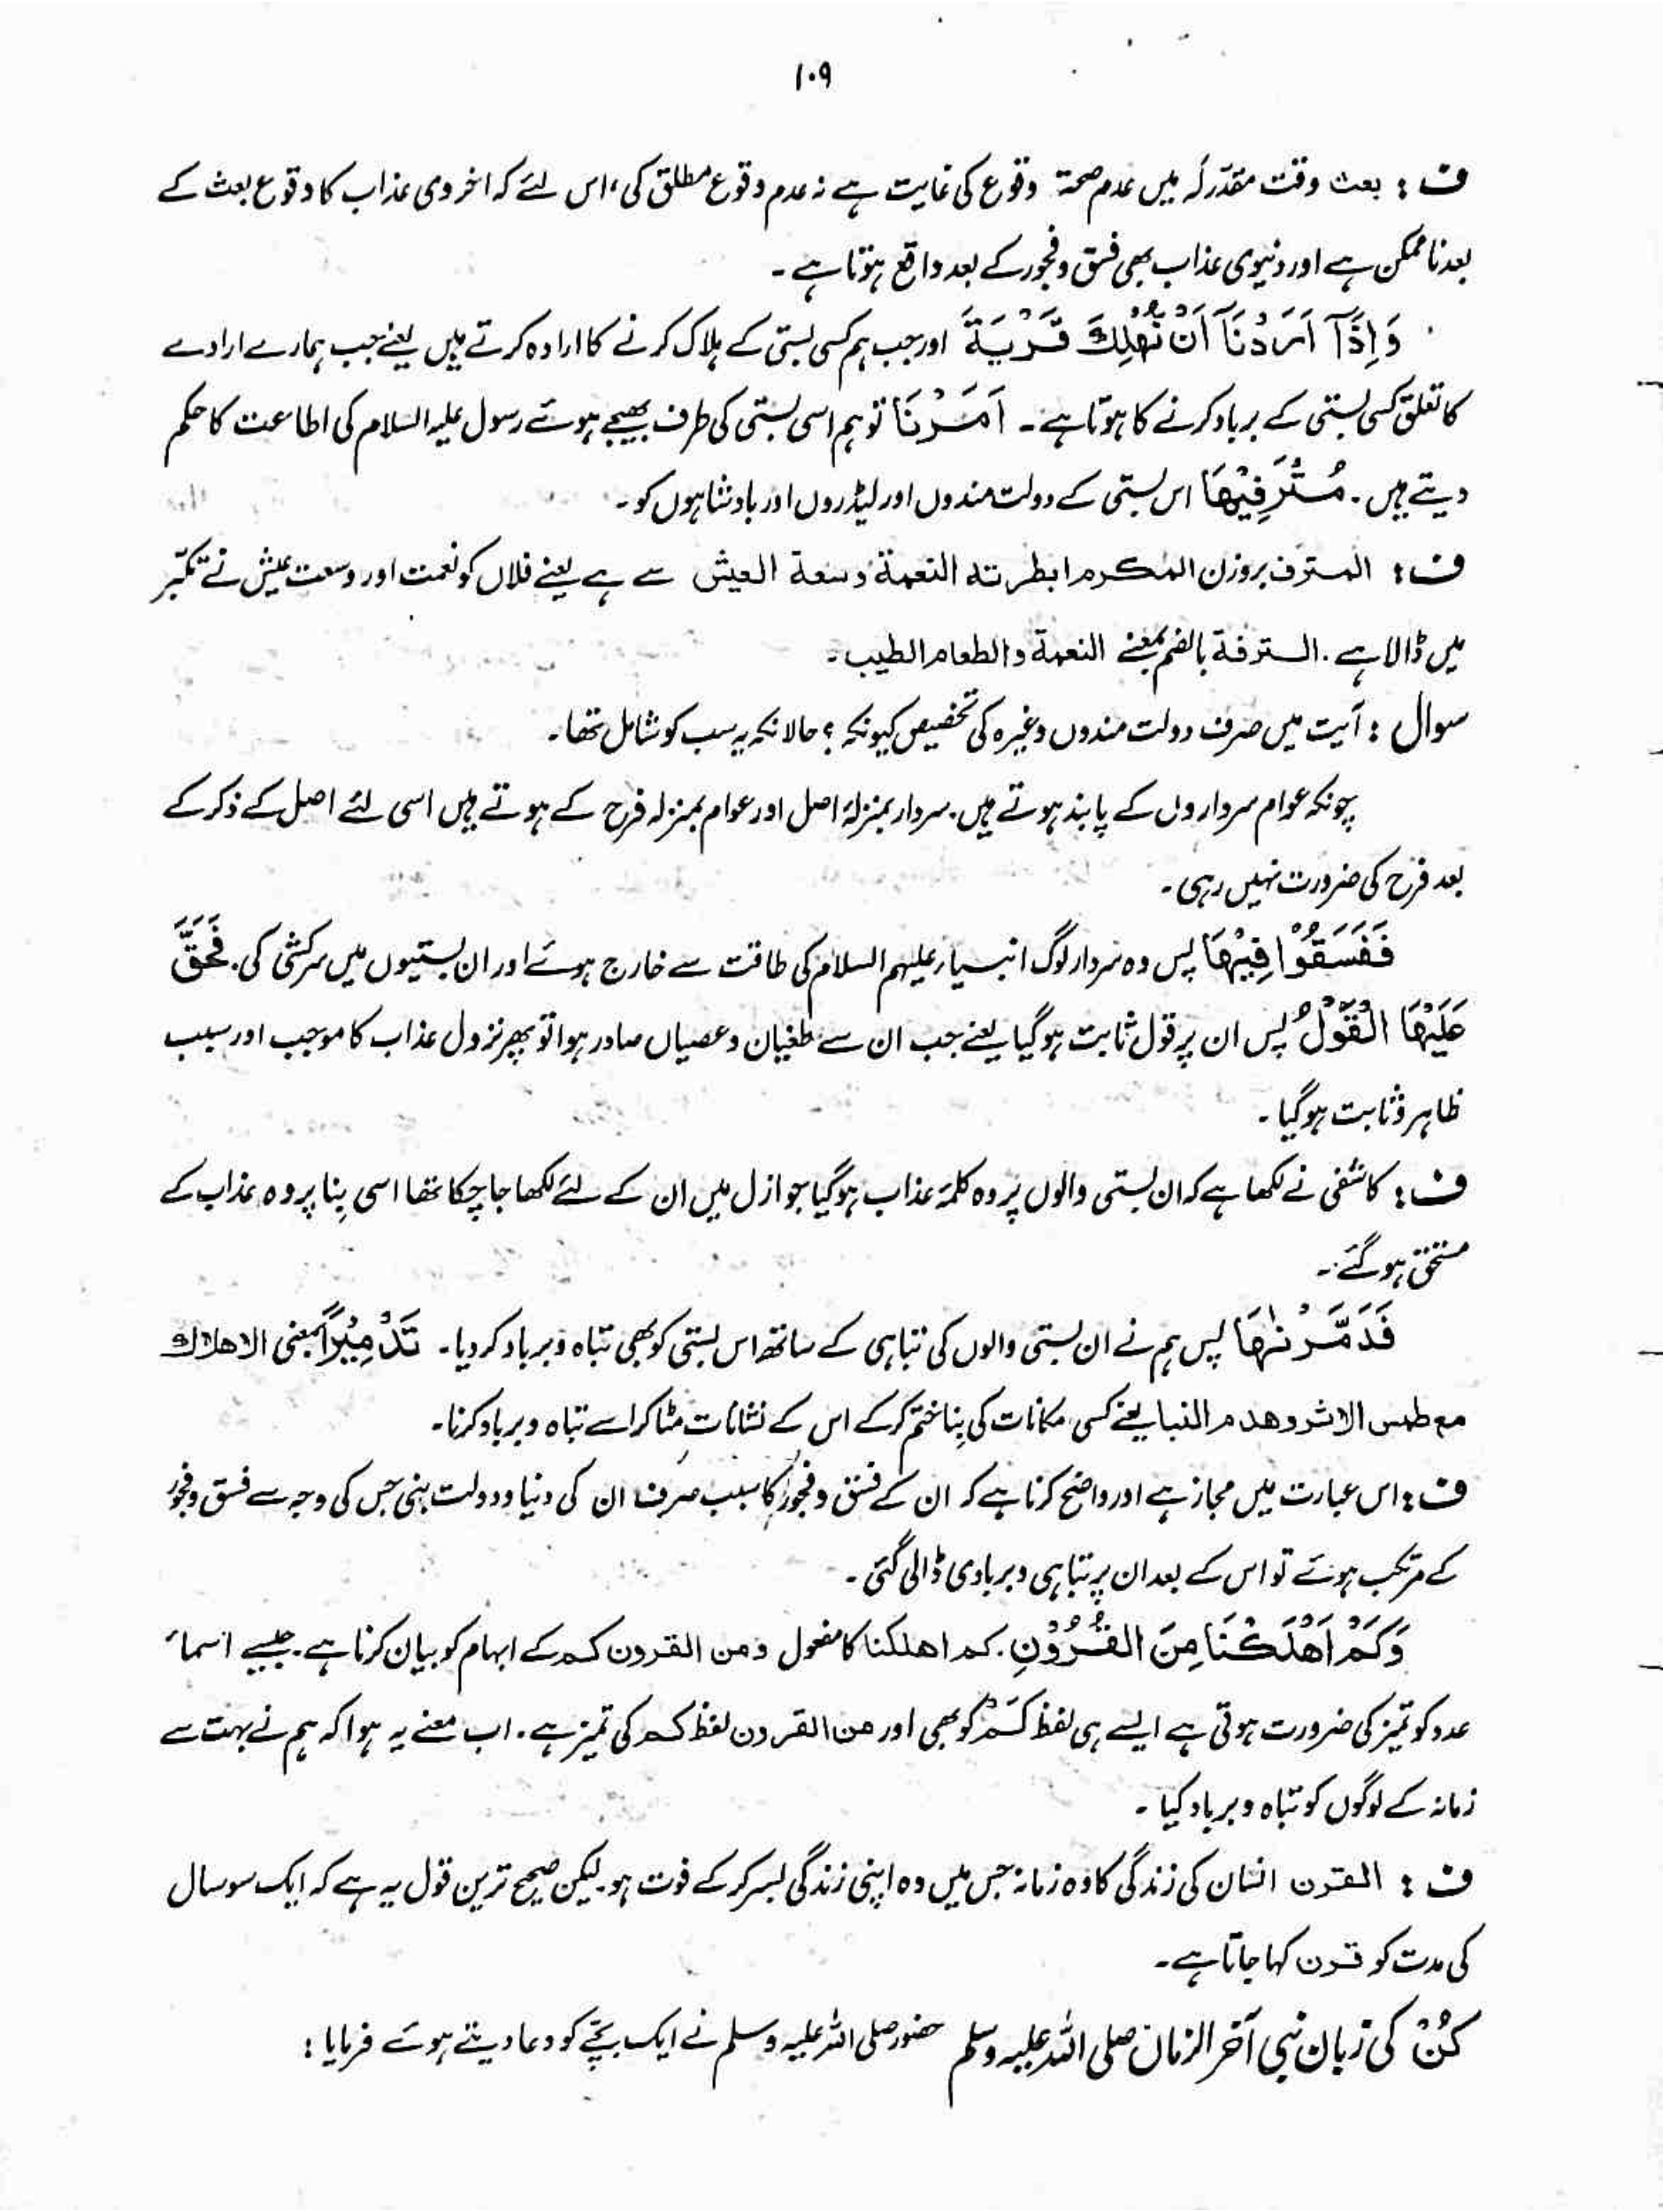 ۱۰۹
ف : بعث وقت مقدّرلہ میں عدم صحۃ وقوع کی غایت ہے نہ عدم وقوع مطلق کی، اس لئے کہ اخروی عذاب کا وقوع بعث کے
بعد ناممکن ہے اور دنیوی عذاب بھی فسق و فجور کے بعد واقع ہوتا ہے ۔
وَاِذَآ اَرَدْنَآ اَنْ نُّهْلِكَ قَرْيَةً اور جب ہم کسی بستی کے ہلاک کرنے کا ارادہ کرتے ہیں یعنے جب ہمارے ارادے
کا تعلق کسی بستی کے برباد کرنے کا ہوتا ہے ۔ اَمَرْنَا تو ہم اسی بستی کی طرف بھیجے ہوئے رسول علیہ السلام کی اطاعت کا حکم
دیتے ہیں ۔ مُتْرَفِيْهَا اس بستی کے دولت مندوں اور لیڈروں اور بادشاہوں کو ۔
ف : المترف بروزن المکرم ابطرته النعمة وسعة العیش سے ہے یعنے فلاں کو نعمت اور وسعت عیش نے تکبّر
میں ڈالا ہے ۔ الترفة بالضم بمعنے النعمة والطعام الطیب ۔
سوال : آیت میں صرف دولت مندوں وغیرہ کی تخصیص کیونکہ ؟ حالانکہ یہ سب کو شامل تھا ۔
چونکہ عوام سرداروں کے پابند ہوتے ہیں ۔ سردار بمنزلۂ اصل اور عوام بمنزلہ فرح کے ہوتے ہیں اسی لئے اصل کے ذکر کے
بعد فرح کی ضرورت نہیں رہی ۔
فَفَسَقُوْا فِيْهَا پس وہ سردار لوگ انبیاء علیہم السلام کی طاقت سے خارج ہوئے اور ان بستیوں میں سرکشی کی ۔ فَحَقَّ
عَلَيْهَا الْقَوْلُ پس ان پر قول ثابت ہوگیا یعنے جب ان سے طغیان و عصیاں صادر ہوا تو پھر نزول عذاب کا موجب اور سبب
ظاہر و ثابت ہوگیا ۔
ف : کاشفی نے لکھا ہے کہ ان بستی والوں پر وہ کلمۂ عذاب ہوگیا جو ازل میں ان کے لئے لکھا جا چکا تھا اسی بِنا پر وہ عذاب کے
مستحق ہوگئے ۔
فَدَمَّرْنٰهَا پس ہم نے ان بستی والوں کی تباہی کے ساتھ اس بستی کو بھی تباہ و برباد کر دیا ۔ تَدْمِيْرًا بمعنی الاهلاك
مع طمس الاثر وهدم النبا یعنے کسی مکانات کی بِنا ختم کرکے اس کے نشانات مِٹا کر اسے تباہ و برباد کرنا ۔
ف : اس عبارت میں مجاز ہے اور واضح کرنا ہے کہ ان کے فسق و فجور کا سبب صرف ان کی دنیا و دولت بنی جس کی وجہ سے فسق و فجور
کے مرتکب ہوئے تو اس کے بعد ان پر تباہی و بربادی ڈالی گئی ۔
وَكَمْ اَهْلَكْنَا مِنَ الْقُرُوْنِ ۔ کم اهلکنا کا مفعول ومن القرون کم کے ابہام کو بیان کرنا ہے ۔ جیسے اسماء
عدد کو تمیز کی ضرورت ہوتی ہے ایسے ہی لفظ کَمْ کو بھی اور من القرون لفظ کم کی تمیز ہے ۔ اب معنے یہ ہوا کہ ہم نے بہت سے
زمانہ کے لوگوں کو تباہ و برباد کیا ۔
ف : القرن انسان کی زندگی کا وہ زمانہ جس میں وہ اپنی زندگی بسر کر کے فوت ہو ۔ لیکن صحیح ترین قول یہ ہے کہ ایک سو سال
کی مدت کو قرن کہا جاتا ہے ۔
کُنْ کی زبان نبی آخر الزمان صلی اللہ علیہ وسلم حضور صلی اللہ علیہ وسلم نے ایک بچّے کو دعا دیتے ہوئے فرمایا :